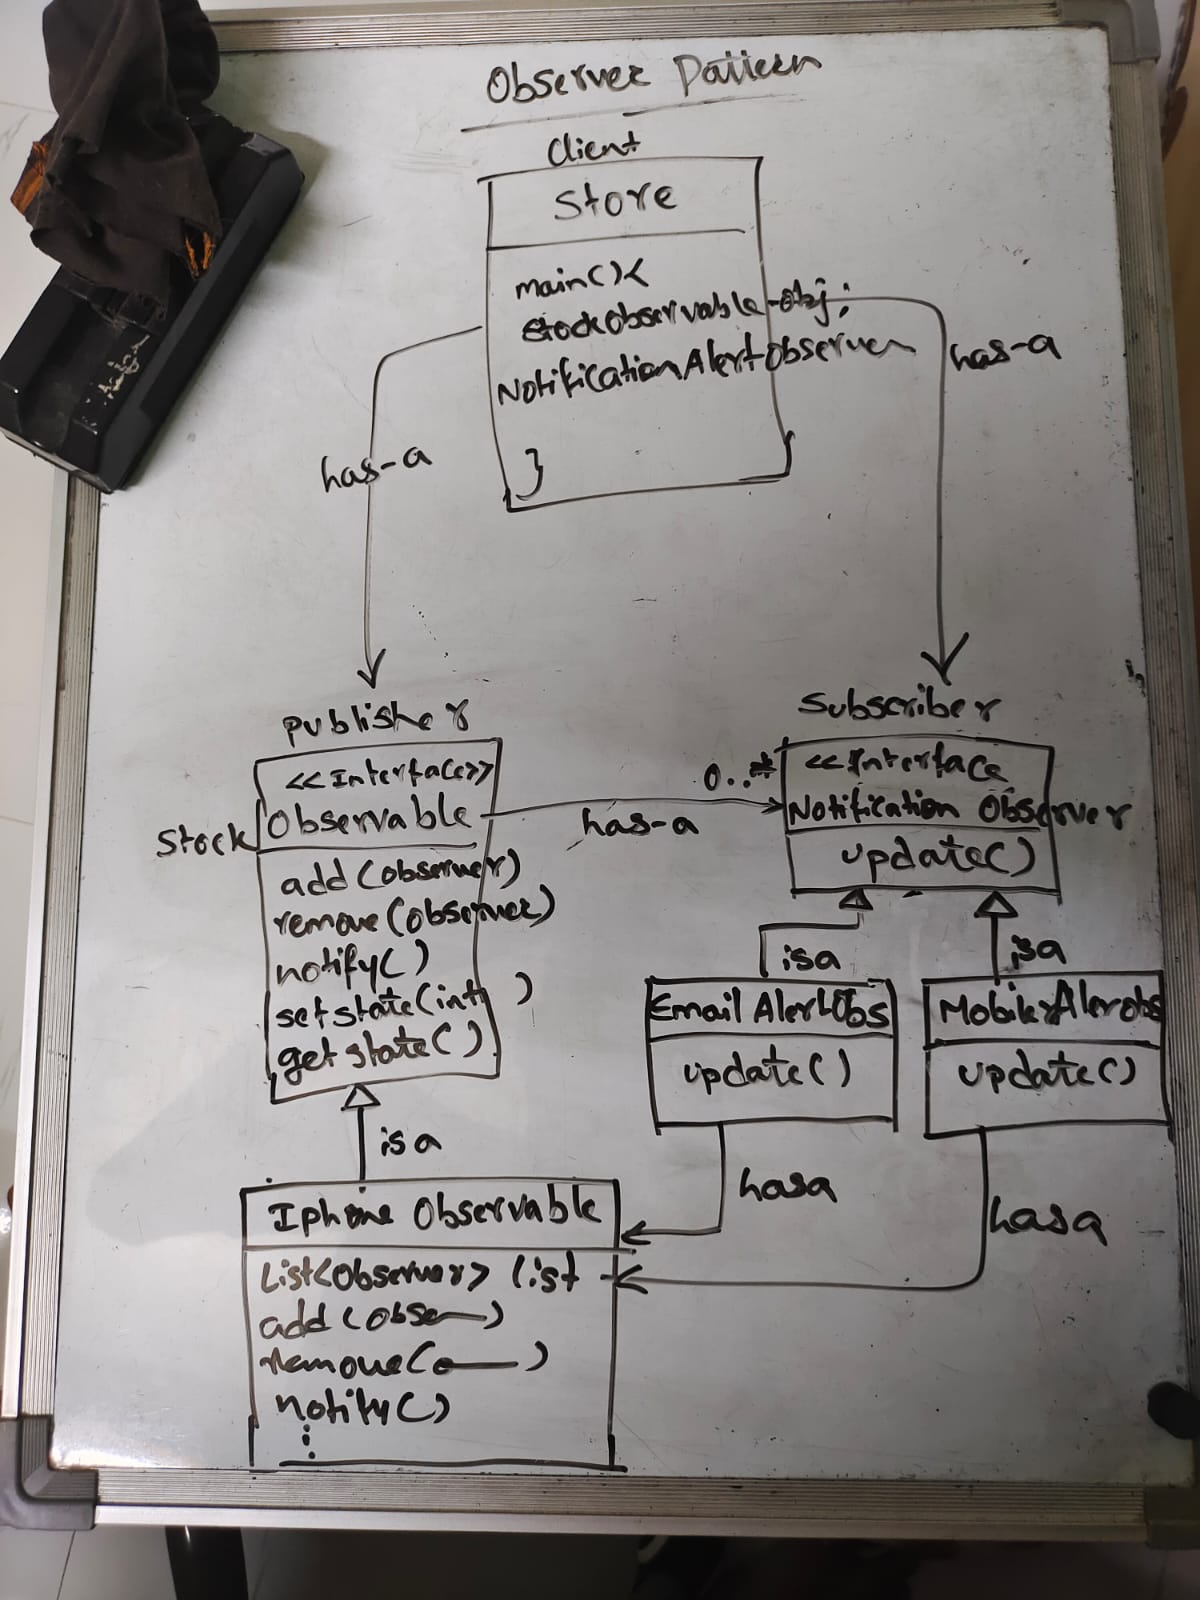 Observer Pattern
Client
Store
main(){
StockObservable-obj;
NotificationAlertObserver
}
has-a
has-a
Publisher
<<Interface>>
Stock Observable
add(observer)
remove(observer)
notify()
setstate(int )
getstate()
has-a
0..*
Subscriber
<<Interface
Notification Observer
update()
isa
isa
EmailAlertObs
update()
MobileAlerobs
update()
hasa
hasa
isa
Iphone Observable
List<Observer> list
add(obse )
remove(o )
notify()